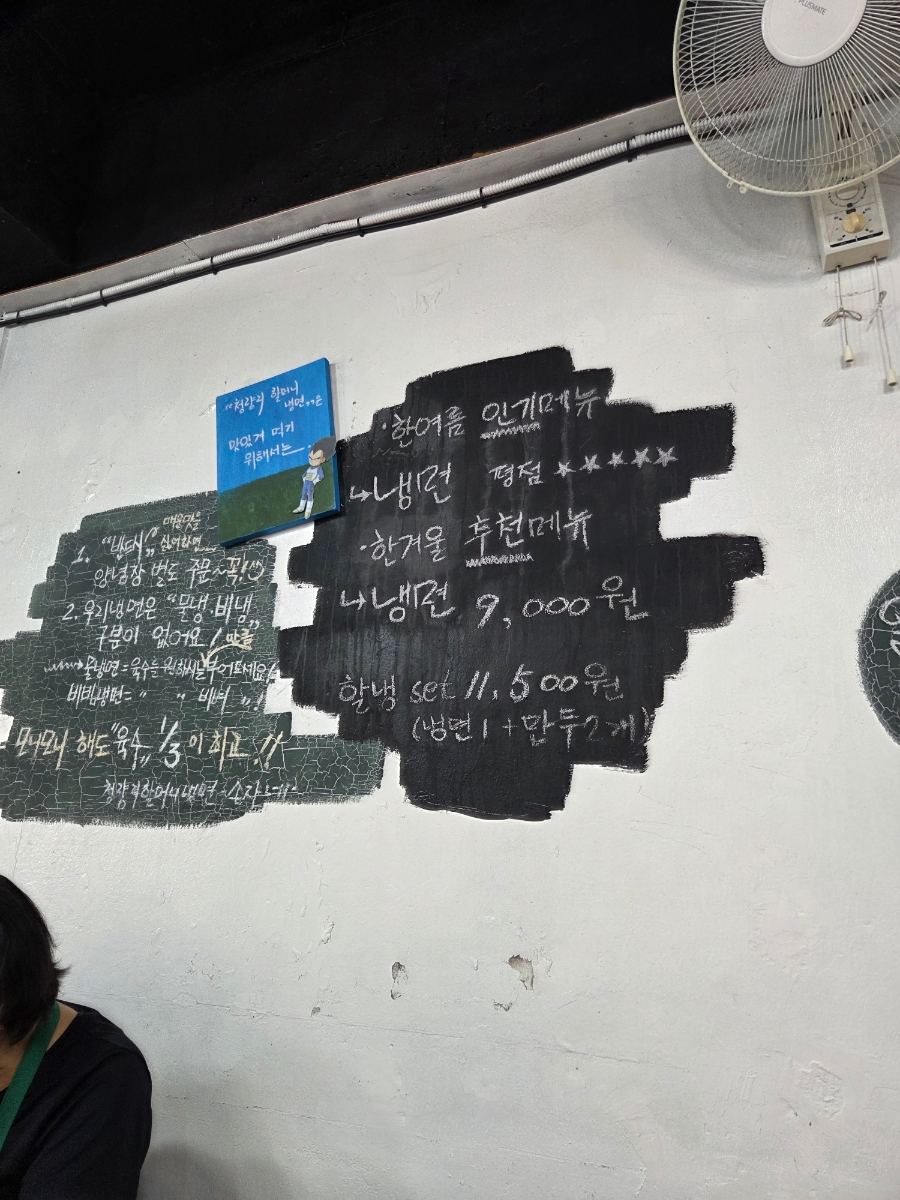 PLUSMATE
"청량리 할머니
냉면"은
맛있게 먹기
위해서는
·한여름 인기메뉴
↳냉면 평점 ★★★★★
·한겨울 추천메뉴
↳냉면 9,000원
할냉 set 11,500원
(냉면1+만두2개)
1. "반드시" 매운맛을
싫어하면
양념장 별도 주문~꼭!
2. 우리냉면은 "물냉, 비냉"
구분이 없어요!
물냉면=육수를 원하시는 만큼 부어드세요!
비빔냉면= " " 비벼 "
모니모니 해도 "육수" 1/3 이 최고!!
청량리할머니냉면